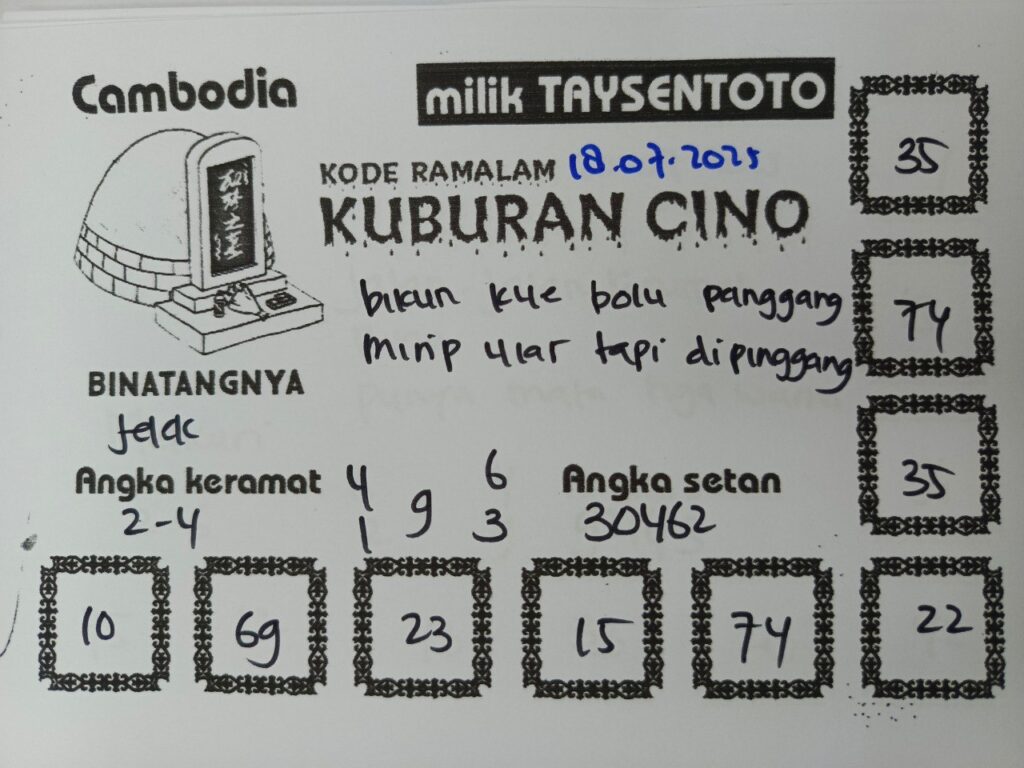 Cambodia
milik TAYSENTOTO
KODE RAMALAM 18.07.2025
KUBURAN CINO
bikun kue bolu panggang
Mirip ular tapi dipinggang
BINATANGNYA
Angka keramat
2-4
4 6
9
1 3
Angka setan
30462
35
74
35
10 69 23 15 74 22